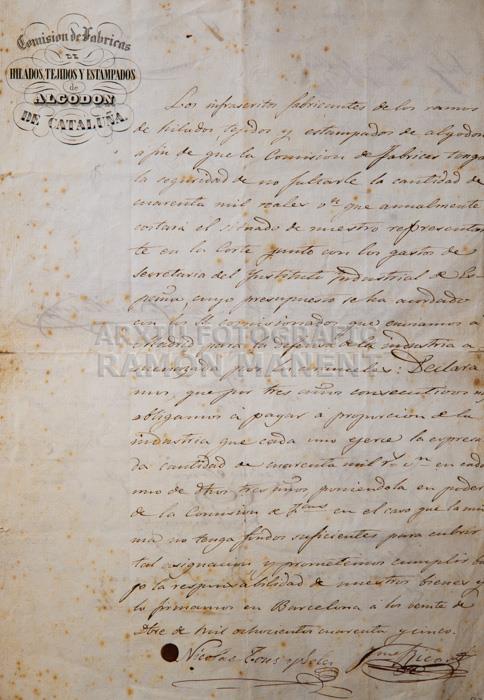 Comision de Fabricas
DE
HILADOS, TEJIDOS Y ESTAMPADOS
de
ALGODON
DE CATALUÑA.
Los infrascritos fabricantes de los ramos
de hilados tejidos y estampados de algodon
a fin de que la Comision de Fabricas tenga
la seguridad de no faltarle la cantidad de
cuarenta mil reales vn que anualmente
costará el de nuestro representan
te en la Corte junto con los gastos de
Secretaria del Instituto Industrial de Es-
paña cuyo presupuesto se ha acordado
con los comisionados que enviamos a
Madrid para la defensa de la industria a
menazada por los aranceles: Declara
mos, que por tres años consecutivos nos
obligamos á pagar a proporcion de la
industria que cada uno ejerce la expresa
da cantidad de cuarenta mil rs vn en cada
uno de dhos tres años poniendola en poder
de la Comision de en el caso que la mis
ma no tenga fondos suficientes para cubrir
tal asignacion y prometemos cumplir ba
jo la responsabilidad de nuestros bienes y
lo firmamos en Barcelona á los veinte de
Dbre de mil ochocientos cuarenta y cinco.
Nicolas Tous y Soler Ricart
ARXIU FOTOGRÀFIC
RAMON MANENT